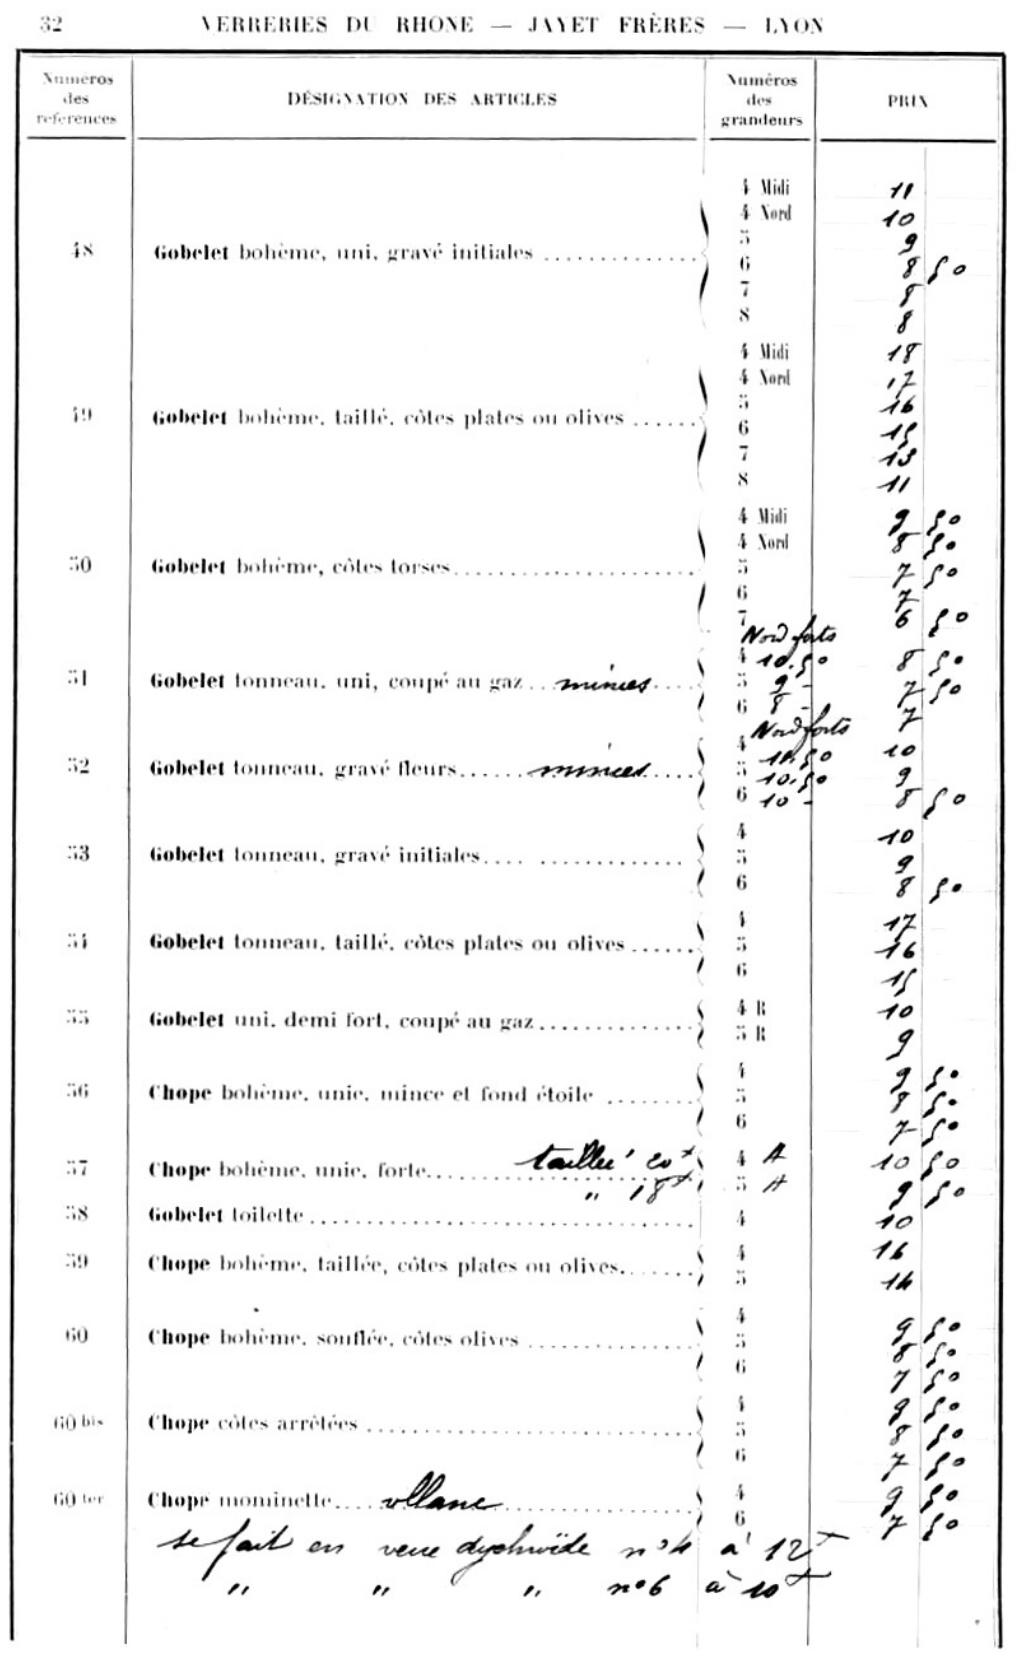 32 VERRERIES DU RHONE — JAYET FRÈRES — LYON
Numéros des références DÉSIGNATION DES ARTICLES Numéros des grandeurs PRIX
4 Midi 11
4 Nord 10
5 9
48 Gobelet bohème, uni, gravé initiales
6 8 50
7 8
8 8
4 Midi 18
4 Nord 17
5 16
49 Gobelet bohème, taillé, côtes plates ou olives
6 15
7 13
8 11
4 Midi 9 50
4 Nord 8 50
50 Gobelet bohème, côtes torses
5 7 50
6 7
7 6 50
Nord forts
4 10.50 8 50
51 Gobelet tonneau, uni, coupé au gaz minces 5 9 - 7 50
6 8 - 7
Nord forts
4 11.50 10
52 Gobelet tonneau, gravé fleurs minces 5 10.50 9
6 10 - 8 50
4 10
53 Gobelet tonneau, gravé initiales 5 9
6 8 50
4 17
54 Gobelet tonneau, taillé, côtes plates ou olives 5 16
6 15
4 R 10
55 Gobelet uni, demi fort, coupé au gaz
5 R 9
4 9 50
56 Chope bohème, unie, mince et fond étoile 5 8 50
6 7 50
57 Chope bohème, unie, forte taillée 20 4 A 10 50
" 18 5 A 9 50
58 Gobelet toilette 4 10
4 16
59 Chope bohème, taillée, côtes plates ou olives
5 14
4 9 50
60 Chope bohème, soufflée, côtes olives 5 8 50
6 7 50
4 9 50
60 bis Chope côtes arrêtées 5 8 50
6 7 50
4 9 50
60 ter Chope mominette
6 7 50
se fait en verre n° 4 à 12
" " " n° 6 à 10